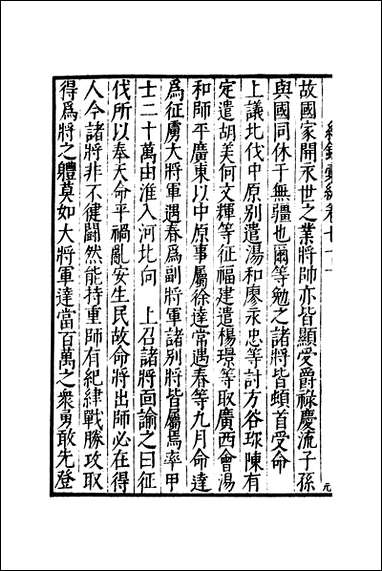 故國家開永世之業將帥亦皆顯受爵祿慶流子孫
與國同休于無疆也爾等勉之諸將皆頓首受命
上議北伐中原別遣湯和廖永忠等討方谷珍陳有
定遣胡美何文輝等征福建遣楊璟等取廣西會湯
和師平廣東以中原事屬徐達常遇春等九月命達
為征虜大將軍遇春為副將軍諸別將皆屬焉率甲
士二十萬由淮入河北向 上召諸將面諭之曰征
伐所以奉天命平禍亂安生民故命將出師必在得
人今諸將非不健鬬然能持重師有紀律戰勝攻取
得為將之體莫如大將軍達當百萬之衆勇敢先登